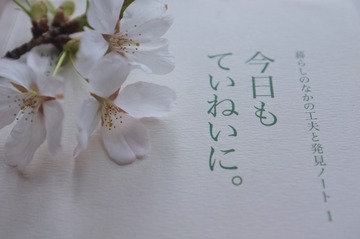 暮らしのなかの工夫と発見ノート 1
今日も
ていねいに。